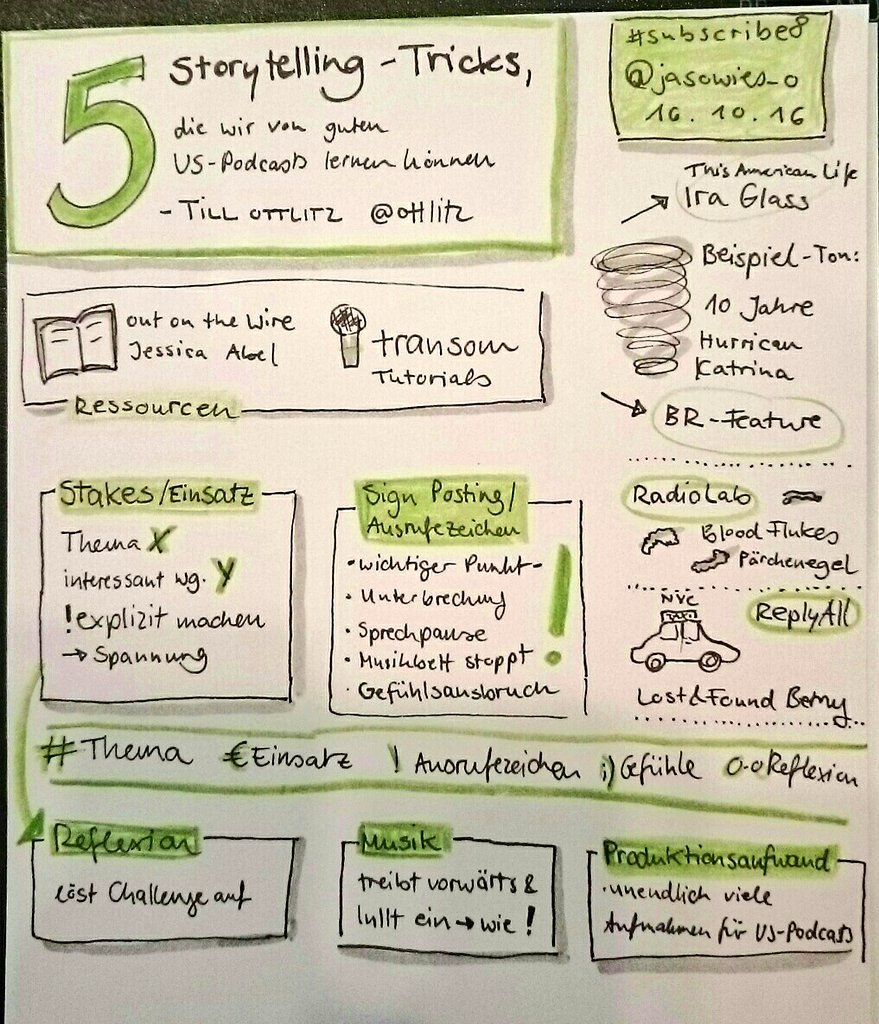 5 Storytelling-Tricks,
die wir von guten
US-Podcasts lernen können
- TILL OTTLITZ @ottlitz
#subscribe8
@jasowies_o
16.10.16
This American Life
Ira Glass
Beispiel-Ton:
10 Jahre
Hurrican
Katrina
BR-Feature
out on the wire
Jessica Abel
transom
Tutorials
Ressourcen
RadioLab
Blood Flukes
Pärchenegel
NYC
TAXI
ReplyAll
Lost&Found Betny
Stakes/Einsatz
Thema X
interessant wg. Y
! explizit machen
→ Spannung
Sign Posting/
Ausrufezeichen
• wichtiger Punkt -
• Unterbrechung
• Sprechpause
• Musikbett stoppt
• Gefühlsausbruch
!
# Thema € Einsatz ! Ausrufezeichen ;) Gefühle O-O Reflexion
Reflexion
löst Challenge auf
Musik
treibt vorwärts &
lullt ein → wie!
Produktionsaufwand
• unendlich viele
Aufnahmen für US-Podcasts